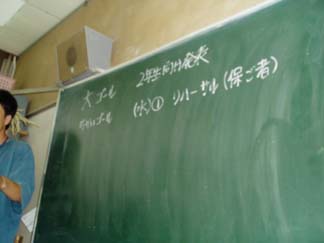 大ゴール 2年生向け発表
(水)① リハーサル(保ご者)